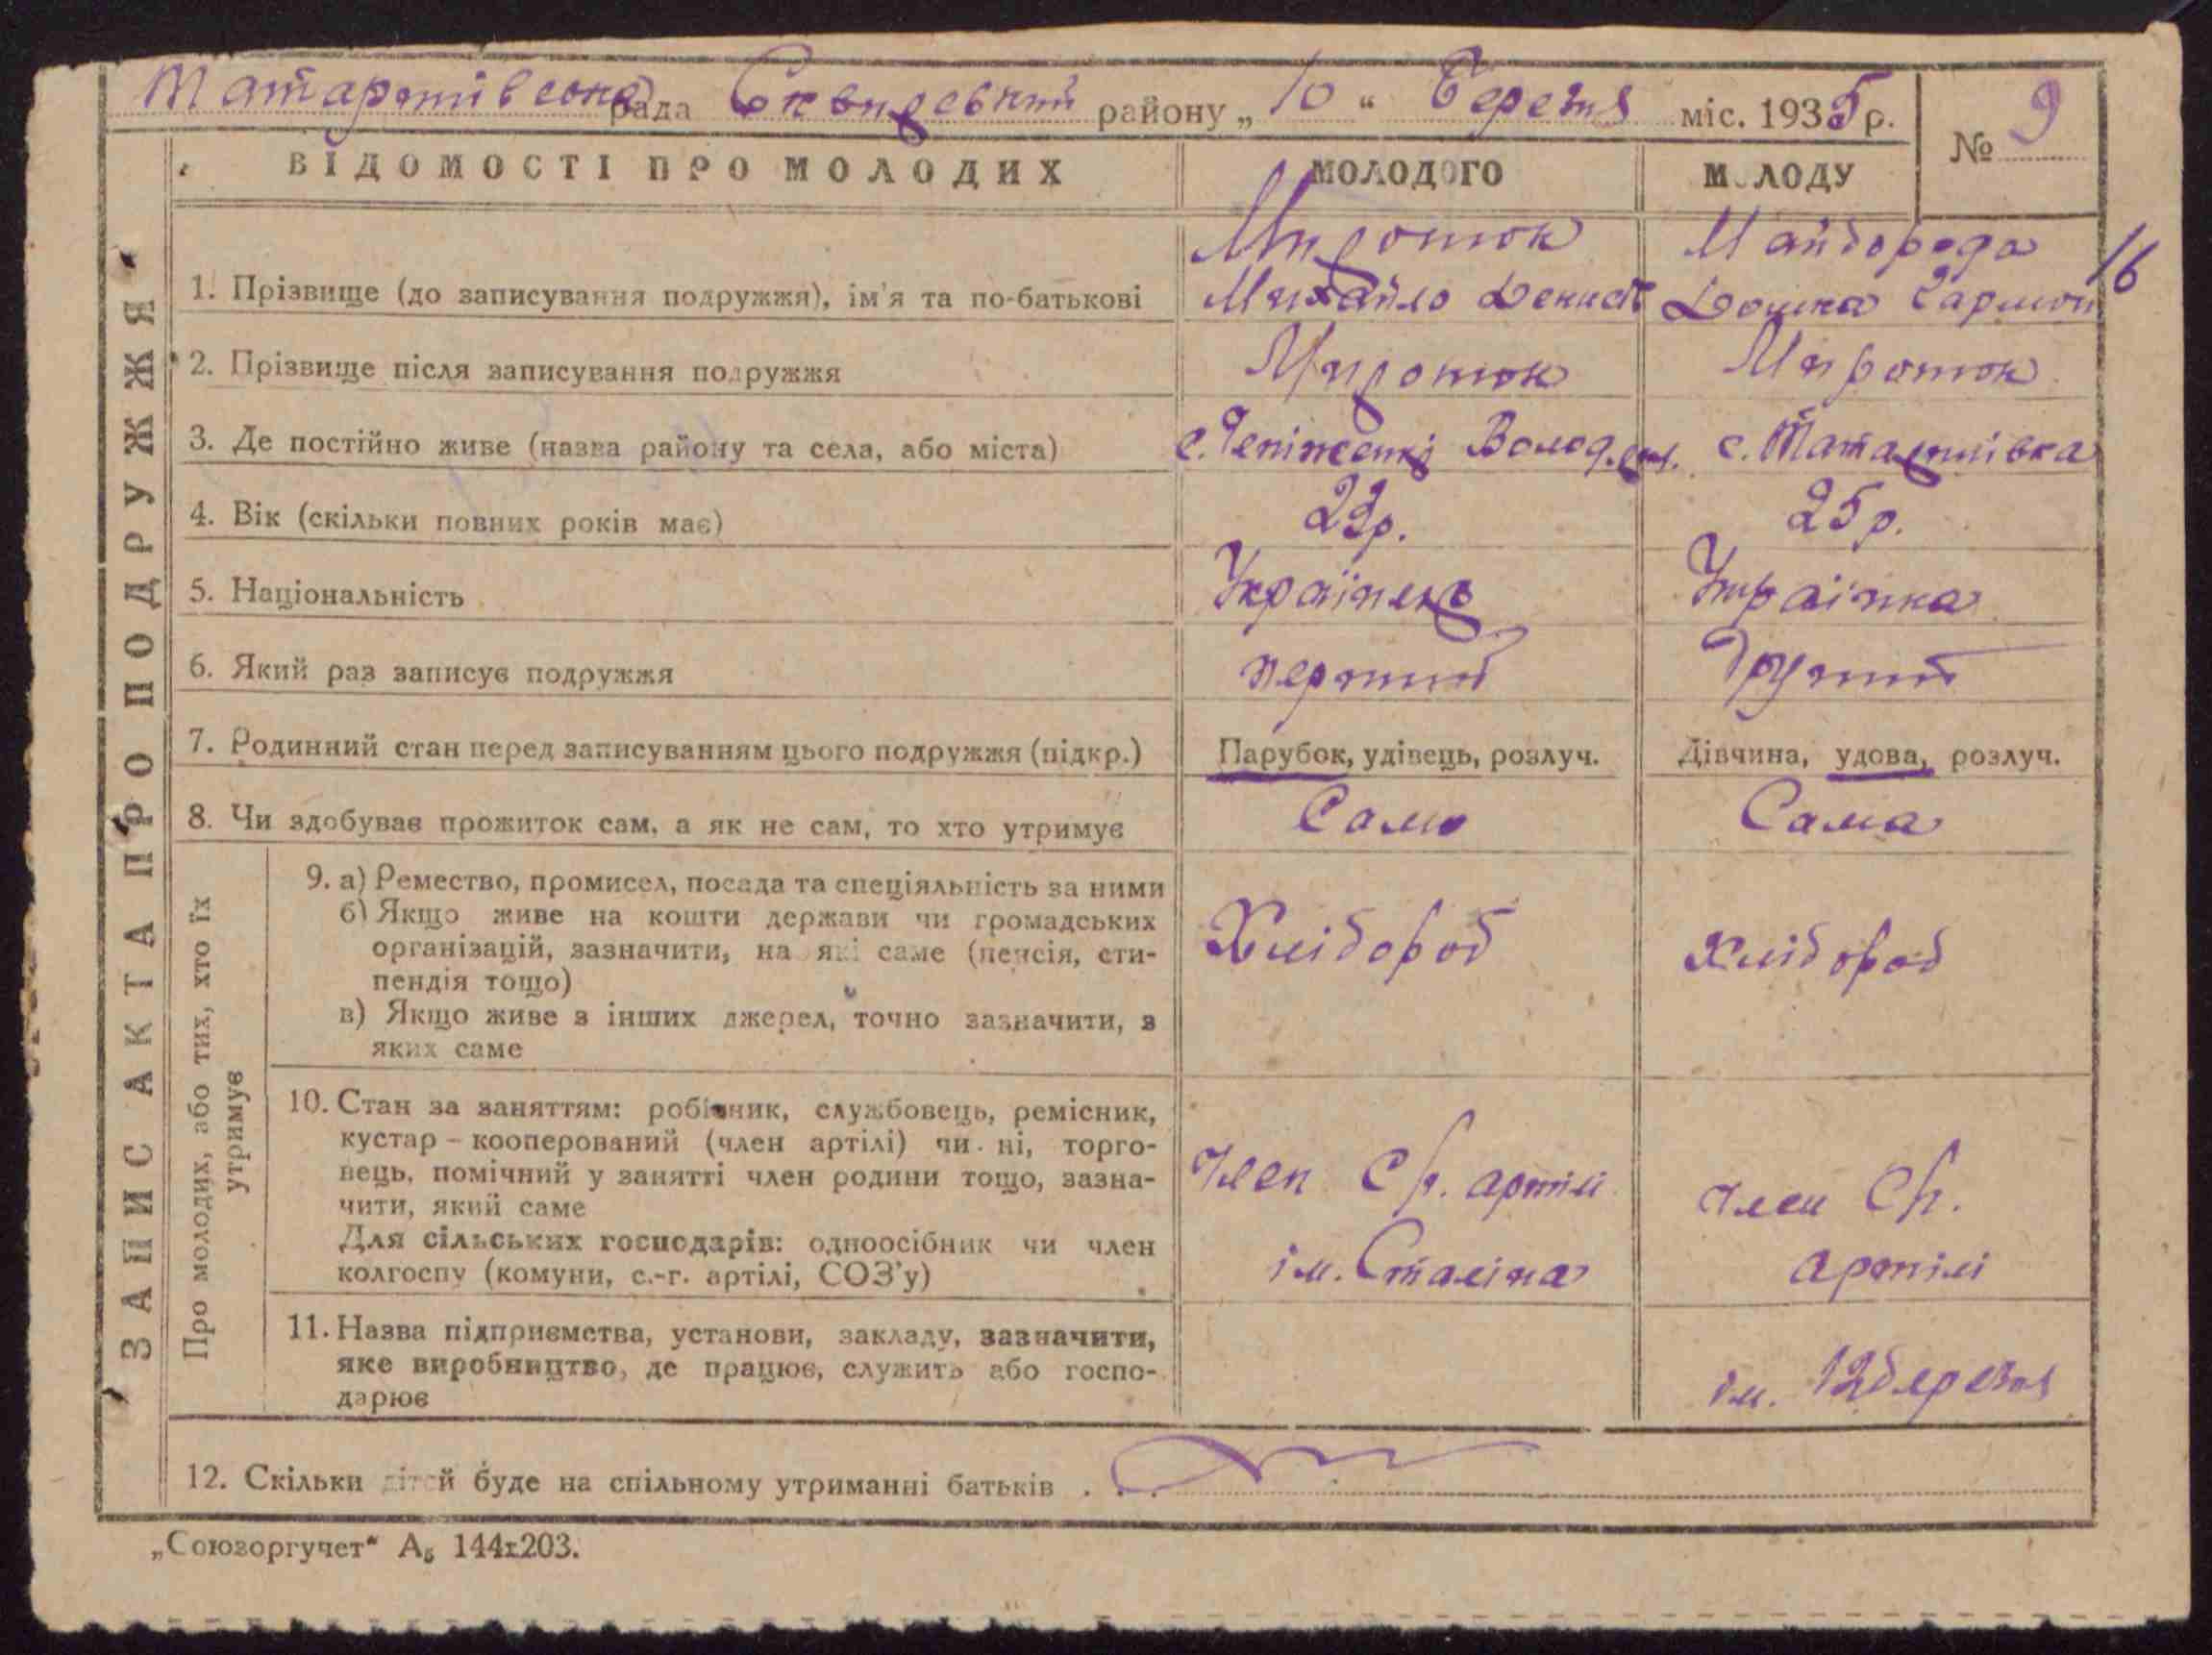 рада району „ 10 “ Березня міс. 1935 р.
№ 9
ВІДОМОСТІ ПРО МОЛОДИХ МОЛОДОГО МОЛОДУ
16
ЗАПИС АКТА ПРО ПОДРУЖЖЯ
1. Прізвище (до записування подружжя), ім'я та по-батькові
Миронюк Михайло Денис
Майборода Гарион
2. Прізвище після записування подружжя Миронюк Миронюк
3. Де постійно живе (назва району та села, або міста) с. Волод. с.
4. Вік (скільки повних років має) 23р. 25р.
5. Національність Українець Українка
6. Який раз записує подружжя перший Другий
7. Родинний стан перед записуванням цього подружжя (підкр.) Парубок, удівець, розлуч. Дівчина, удова, розлуч.
8. Чи здобуває прожиток сам, а як не сам, то хто утримує Сам Сама
Про молодих, або тих, хто їх
утримує
9. а) Ремество, промисел, посада та спеціяльність за ними
б) Якщо живе на кошти держави чи громадських
організацій, зазначити, на які саме (пенсія, сти-
пендія тощо)
в) Якщо живе з інших джерел, точно зазначити, з
яких саме
Хлібороб
Хлібороб
10. Стан за заняттям: робітник, службовець, ремісник,
кустар – кооперований (член артілі) чи ні, торго-
вець, помічний у занятті член родини тощо, зазна-
чити, який саме
Для сільських господарів: одноосібник чи член
колгоспу (комуни, с.-г. артілі, СОЗ'у)
Член артілі
ім. Сталіна
Член
артілі
11. Назва підприємства, установи, закладу, зазначити,
яке виробництво, де працює, служить або госпо-
дарює
ім. 12 березня
12. Скільки дітей буде на спільному утриманні батьків . . .
„Союзоргучет“ А₅ 144х203.